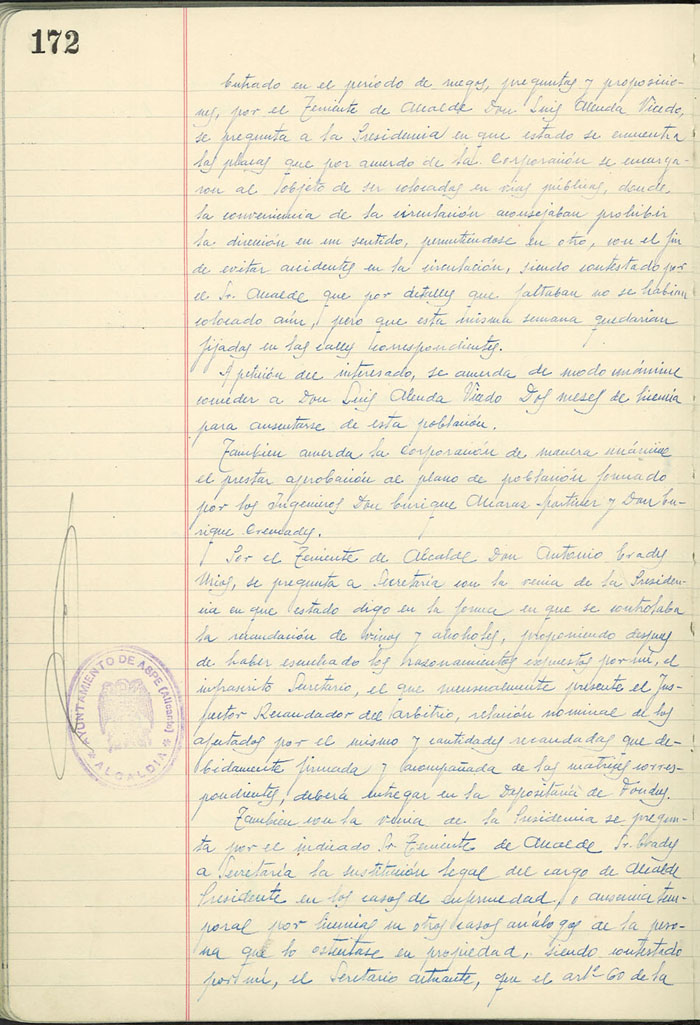 172
Entrado en el período de ruegos, preguntas y proposicio-
nes, por el Teniente de Alcalde Don Luis Alenda Vicedo,
se pregunta a la Presidencia en que estado se encuentra
las placas que por acuerdo de la Corporación se encarga-
ron al objeto de ser colocadas en vías públicas, donde
la conveniencia de la circulación aconsejaban prohibir
la dirección en un sentido, permitiéndose en otro, con el fin
de evitar accidentes en la circulación, siendo contestado por
el Sr. Alcalde que por detalles que faltaban no se habían
colocado aún, pero que esta misma semana quedarían
fijadas en las calles correspondientes.
A petición del interesado, se acuerda de modo unánime
conceder a Don Luis Alenda Vicedo Dos meses de licencia
para ausentarse de esta población.
Tambien acuerda la Corporación de manera unánime
el prestar aprobación al plano de población formado
por los Ingenieros Don Enrique Alcaraz Martinez y Don En-
rique Cremades.
Por el Teniente de Alcalde Don Antonio Prades
Urios, se pregunta a Secretaría con la venia de la Presiden-
cia en que estado digo en la forma en que se controlaba
la recaudación de vinos y alcoholes, proponiendo despues
de haber escuchado los razonamientos expuestos por mí, el
infrascrito Secretario, el que mensualmente presente el Ins-
pector Recaudador del arbitrio, relación nominal de los
afectados por el mismo y cantidades recaudadas que de-
bidamente firmada y acompañada de las matrices corres-
pondientes, deberá entregar en la Depositaría de Fondos.
Tambien con la venia de la Presidencia se pregun-
ta por el indicado Sr Teniente de Alcalde Sr. Prades
a Secretaría la sustitución legal del cargo de Alcalde
Presidente en los casos de enfermedad, o ausencia tem-
poral por licencias u otros casos análogos de la perso-
na que lo osténtase en propiedad, siendo contestado
por mí, el Secretario actuante, que el artº 60 de la
AYUNTAMIENTO DE ASPE (Alicante)
ALCALDIA